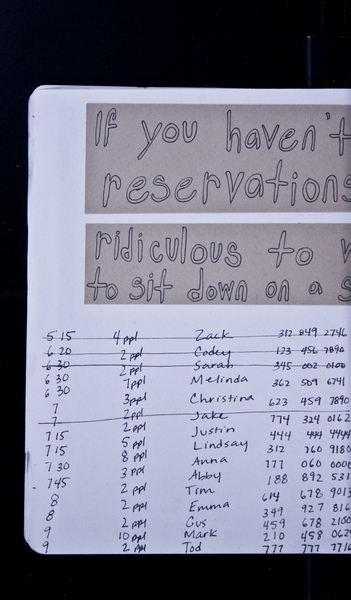 If you haven't
reservations
ridiculous to
to sit down on a s
5 15 4 ppl Zack 312 849 2746
6 20 2 ppl Codey 123 456 7890
6 30 2 ppl Sarah 345 002 0100
6 30 7 ppl Melinda 362 509 6741
6 30 3 ppl Christina 623 459 7890
7 2 ppl Jake 774 324 0162
7 2 ppl Justin 444 444 4444
7 15 5 ppl Lindsay 312 760 9180
7 15 8 ppl Anna 777 060 000
7 30 3 ppl Abby 188 892 531
7 45 2 ppl Tim 614 678 9013
8 2 ppl Emma 349 927 816
8 2 ppl Gus 459 678 2100
9 10 ppl Mark 210 458 062
9 2 ppl Tod 777 777 7716